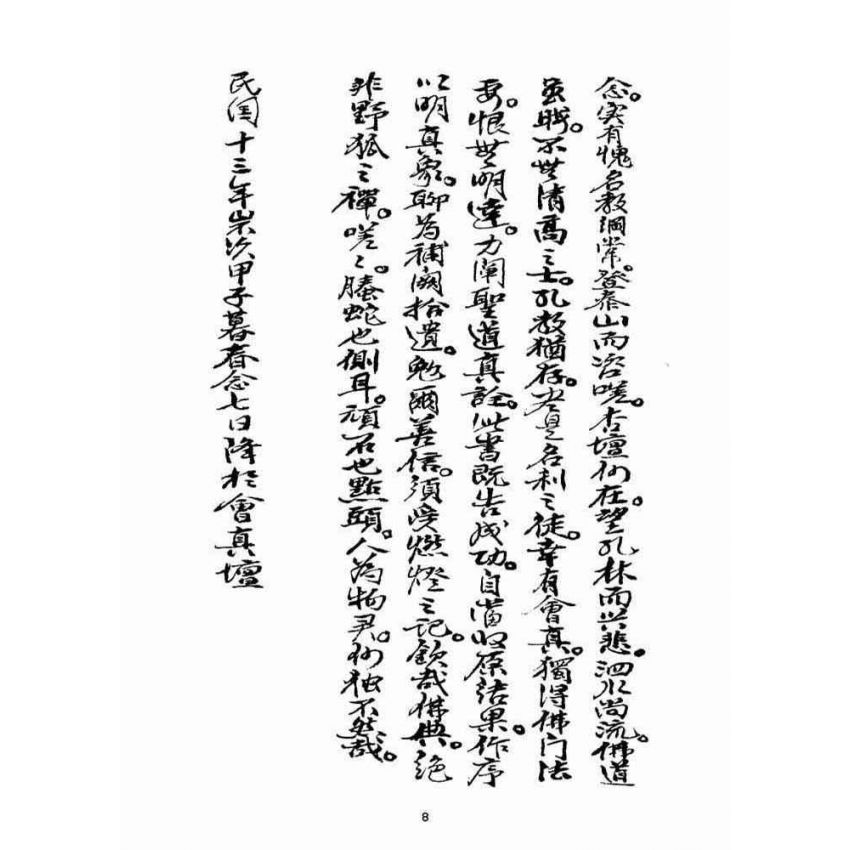 念。实有愧名教綱常。登泰山而咨嗟。杏壇何在。望孔林而兴悲。泗水尚流。佛道
虽。不無清高之士。孔教猶存。尽是名利之徒。幸有會真。獨得佛门法
要。恨無明達。力闡聖道真詮。此書既告成功。自當收原結果。作序
以明真象。聊為補闕拾遺。勉爾善信。須受燃燈之記。欽哉佛典。絕
非野狐之禪。嗟々。螣蛇也側耳。頑石也點頭。人為物灵。何独不然哉。
民国十三年岁次甲子暮春念七日降於會真壇
8